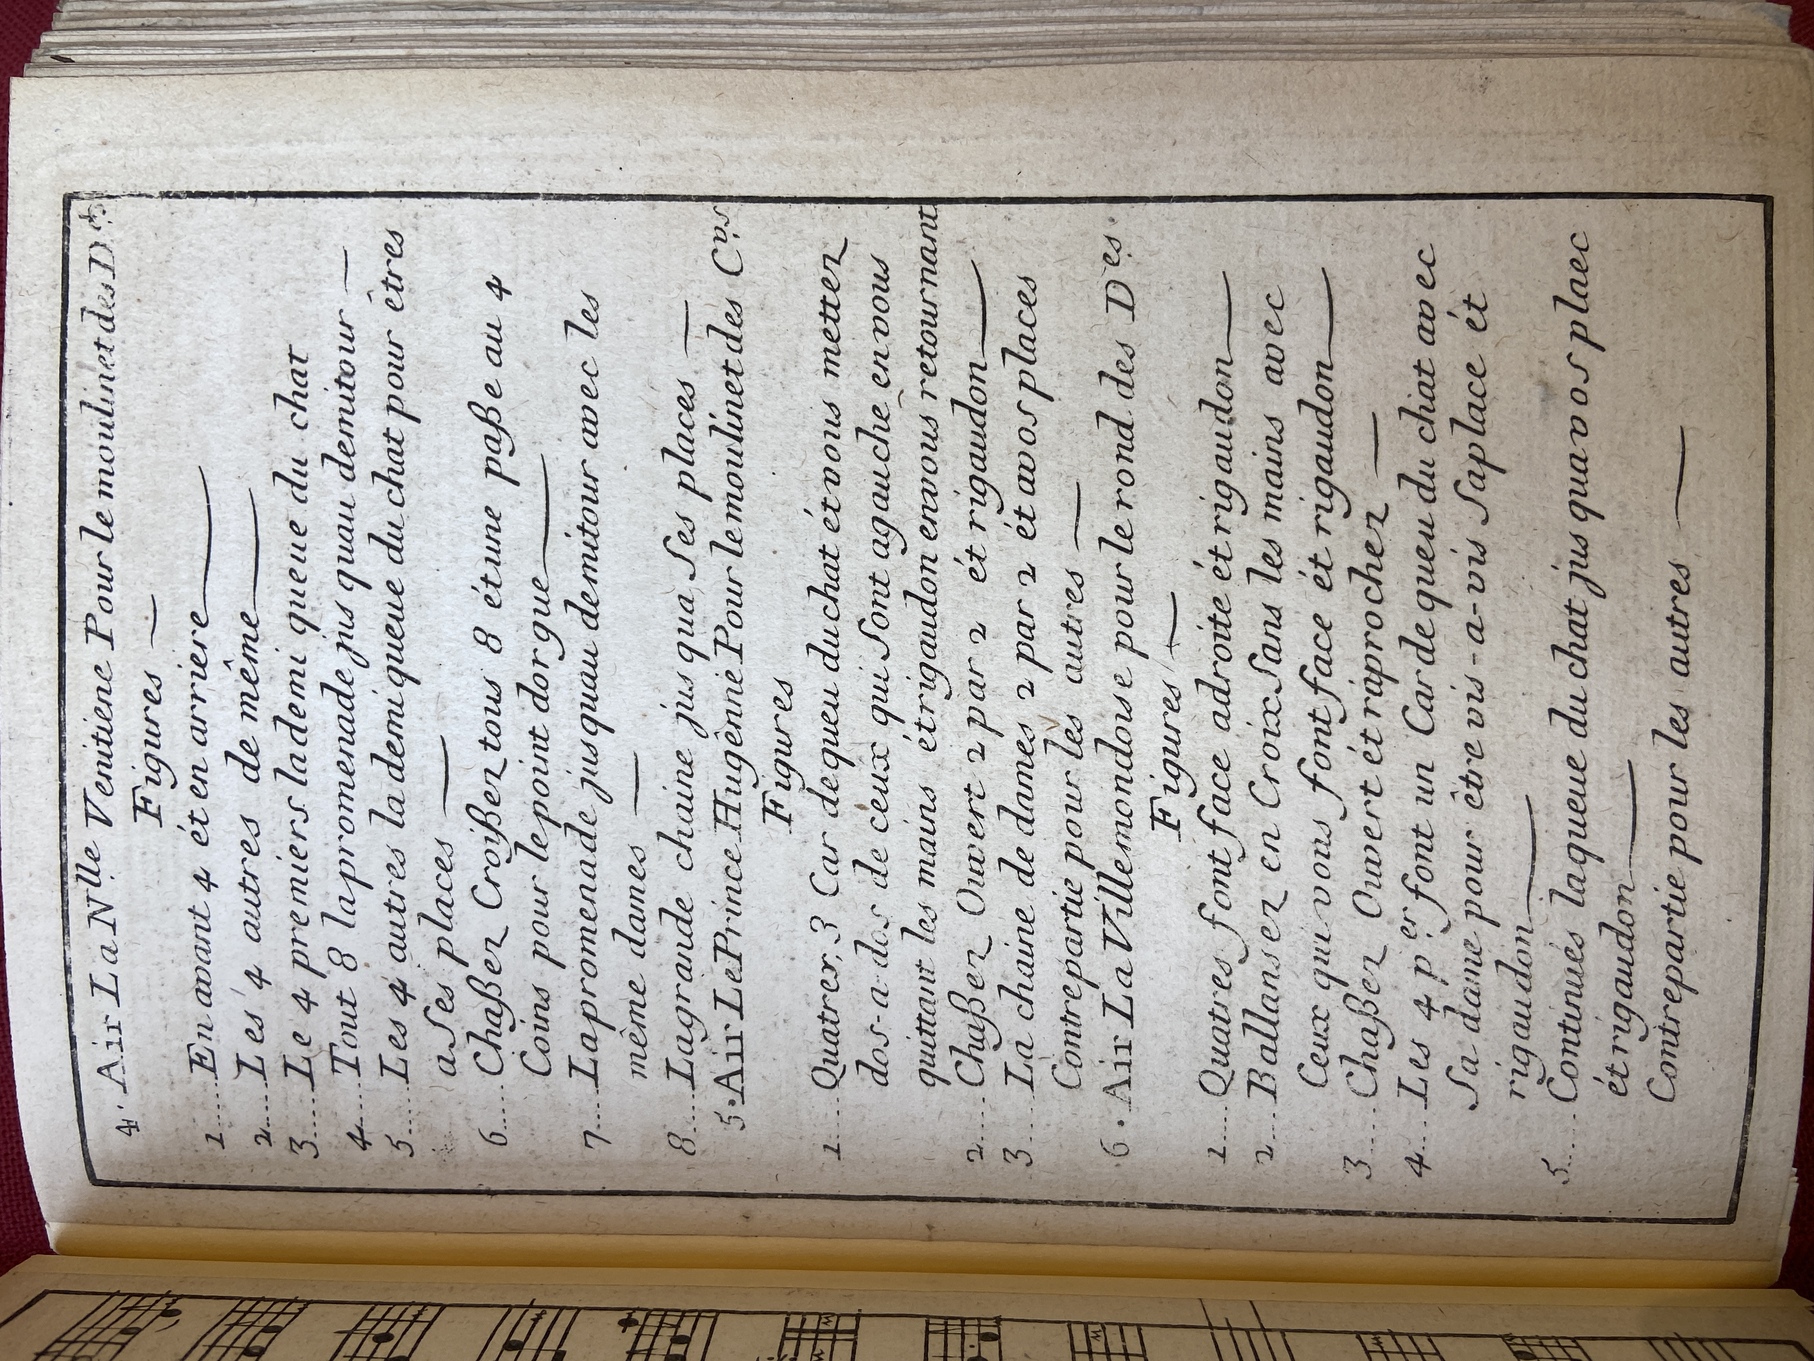 4. Air La Nlle. Venitiene Pour le moulinet des Des.
Figures
1.... En avant 4 ét en arriere
2.... Les 4 autres de même
3.... Le 4 premiers la demi queue du chat
4.... Tout 8 la promenade jus quau demitour
5.... Les 4 autres la demi queue du chat pour êtres
a Ses places
6.... Chaßez Croißez tous 8 ét une paße au 4
Coins pour le point dorgue
7.... La promenade jusquau demitour avec les
même dames
8.... La grande chaine jus qua Ses places
5. Air Le Prince Hugênne Pour le moulinet des Cvs.
Figures
1.... Quatrez, 3 Car de queu du chat ét vous mettez
dos-a-dos de ceux qui Sont a gauche en vous
quittant les mains ét rigaudon en vous retournant
2.... Chaßez Ouvert 2 par 2 ét rigaudon
3.... La chaine de dames 2 par 2 ét a vos places
Contrepartie pour les autres
6. Air La Villemondouse pour le rond des Des.
Figures
1.... Quatres font face a droite ét rigaudon
2.... Ballansez en Croix Sans les mains avec
Ceux qui vous font face ét rigaudon
3.... Chaßez Ouvert ét raprochez
4.... Les 4 p.er font un Car de queu du chat avec
Sa dame pour être vis-a-vis Sa place ét
rigaudon
5.... Continués la queue du chat jus qua vos plaec
ét rigaudon
Contrepartie pour les autres